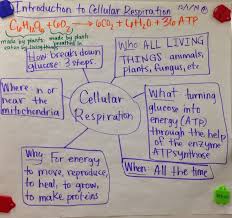 Introduction to Cellular Respiration
C6H12O6 + 6O2 → 6CO2 + 6H2O + 36 ATP
made by plants
made by plants
eaten by living things
breathed in
How breaks down
glucose: 3 steps.
Who ALL LIVING
THINGS animals,
plants, fungus, etc
Where: in or
near the
mitochondria
Cellular
Respiration
What turning
glucose into
energy (ATP)
through the help
of the enzyme
ATP synthase
Why For energy
to move, reproduce,
to heal, to grow,
to make proteins
When: All the time